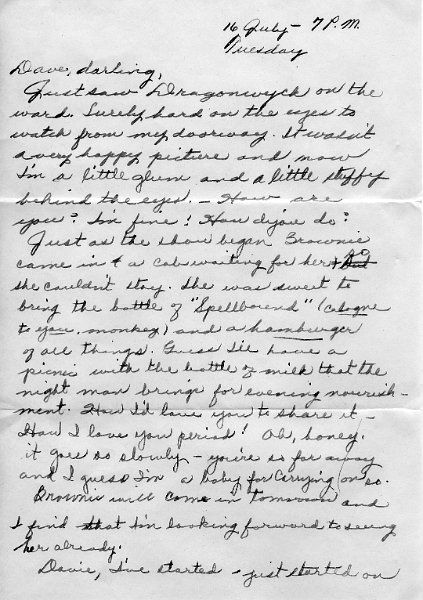 16 July - 7 P.M.
Tuesday
Dave, darling,
Just saw Dragonwyck on the
ward. Surely hard on the eyes to
watch from my doorway. It wasn't
a very happy picture and now
I'm a little glum and a little stuffy
behind the eyes. - How are
you? I'm fine! How dijae do?
Just as the show began Brownie
came in & a cab waiting for her so
she couldn't stay. She was sweet to
bring the bottle of "Spellbound" (cologne
to you, monkey) and a hamburger
of all things. Guess I'll have a
picnic with the bottle of milk that the
night man brings for evening nourish-
ment. How I'd love you to share it -
How I love you period! Oh, honey,
it goes so slowly - you're so far away
and I guess I'm a baby for carrying on so.
Brownie will come in tomorrow and
I find that I'm looking forward to seeing
her already.
Davie, I've started - just started on